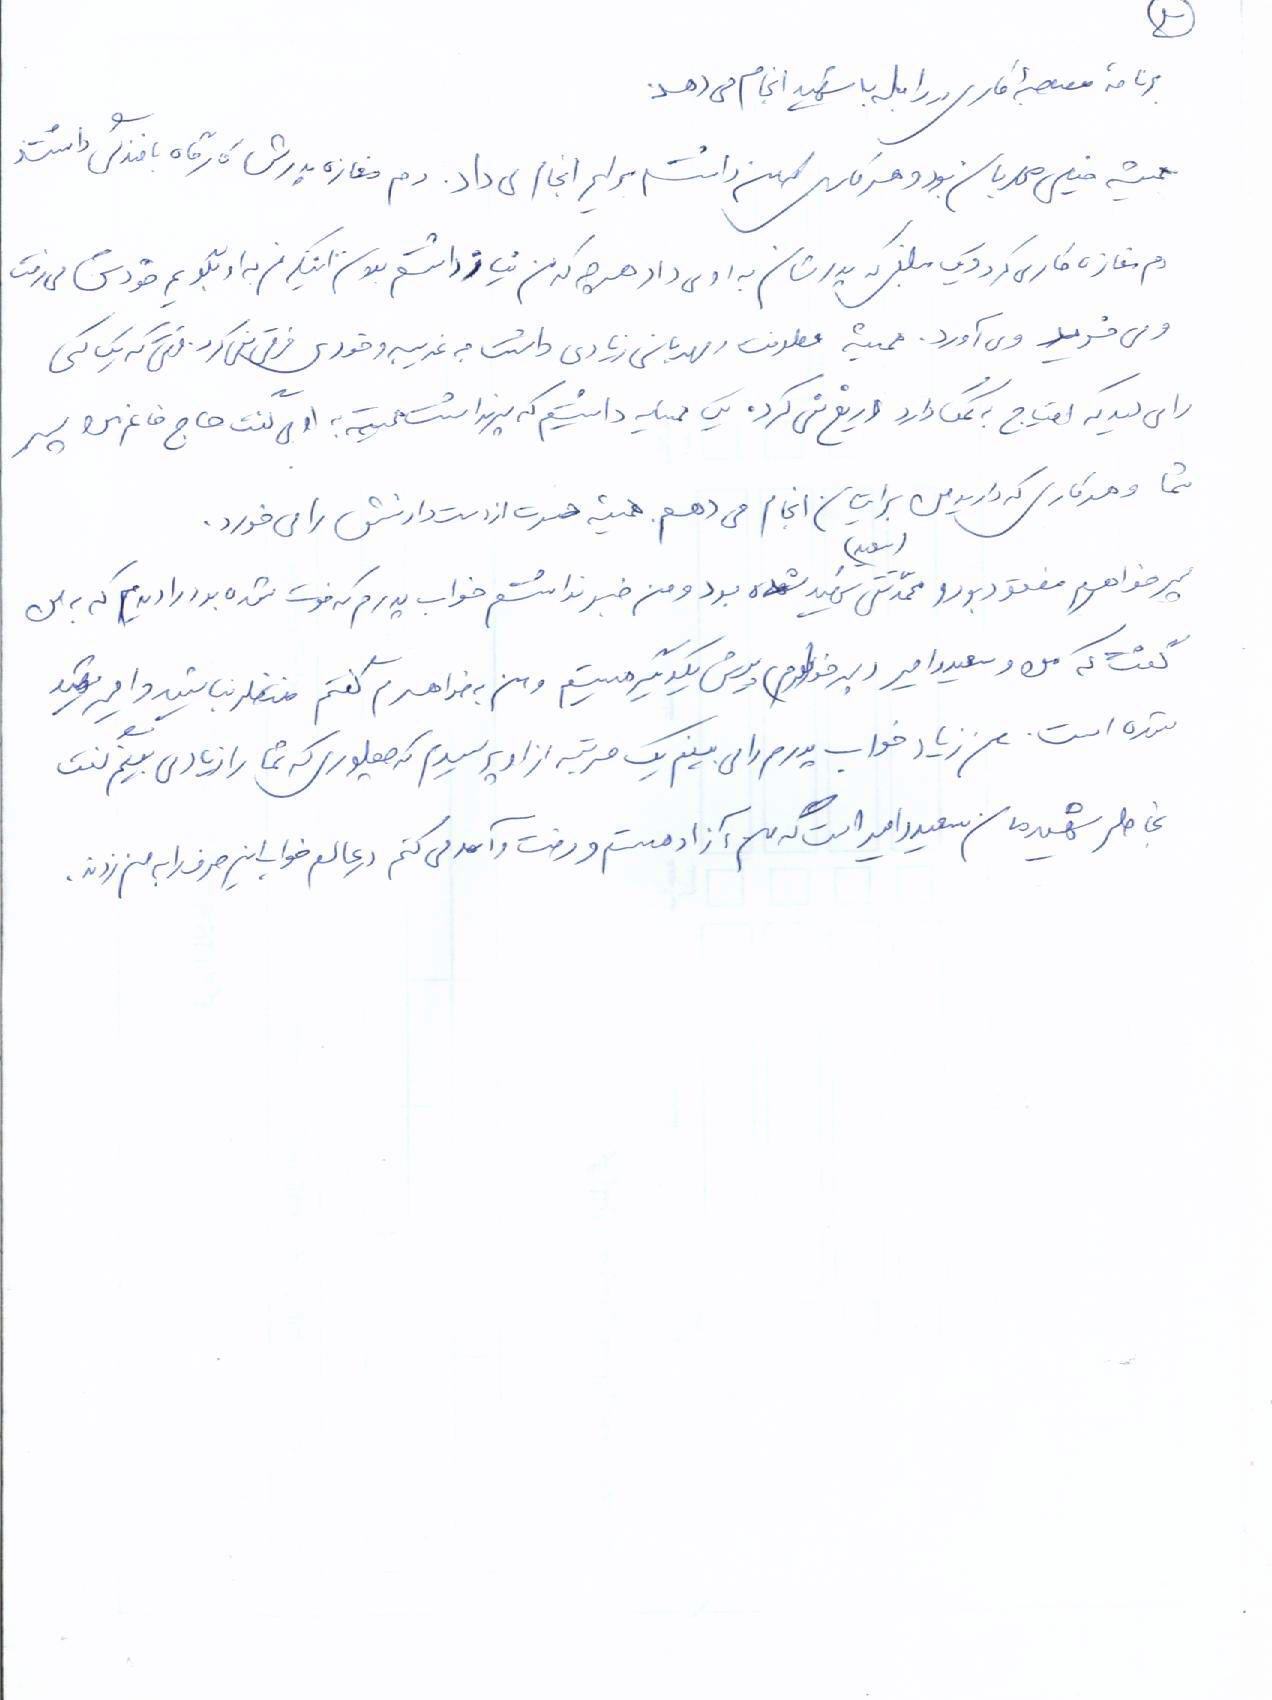 ۲
برنامهٔ مصاحبهٔ آماری در رابطه با شهید انجام می‌دهد.
همیشه خیلی مهربان بود و هر کاری که من داشتم برایم انجام می‌داد. دم مغازه پدرش کارگاه بافندگی داشتند
دم مغازه کار می‌کرد و یک مبلغی که پدرشان به او می‌داد هر چه که من نیاز داشتم بدون اینکه من به او بگویم خودش می‌رفت
و می‌خرید و می‌آورد. همیشه عطوفت و مهربانی زیادی داشت به غریبه و خودی فرقی نمی‌کرد. وقتی که یک کسی
را می‌دید که احتیاج به کمک دارد دریغ نمی‌کرد. یک همسایه داشتیم که پسر نداشت همیشه به او می‌گفت حاج خانم من پسر
شما و هر کاری که دارید من برایتان انجام می‌دهم. همیشه حسرت از دست دادنش را می‌خورد.
(سعید)
پسر خواهرم مفقود بود و محمدتقی شهید شده بود و من خبر نداشتم خواب پدرم که فوت شده بود را دیدم که به من
گفت که من و سعید و امیر و پسر خواهرم پیش یکدیگر هستیم و من به خواهرم گفتم منتظر نباشید و امیر شهید
شده است. من زیاد خواب پدرم را می‌بینم یک مرتبه از او پرسیدم که چطوری که شما را زیاد می‌بینم گفت
بخاطر شهیدمان سعید و امیر است که من آزاد هستم و رفت و آمد می‌کنم در عالم خواب این حرف را به من زدند.